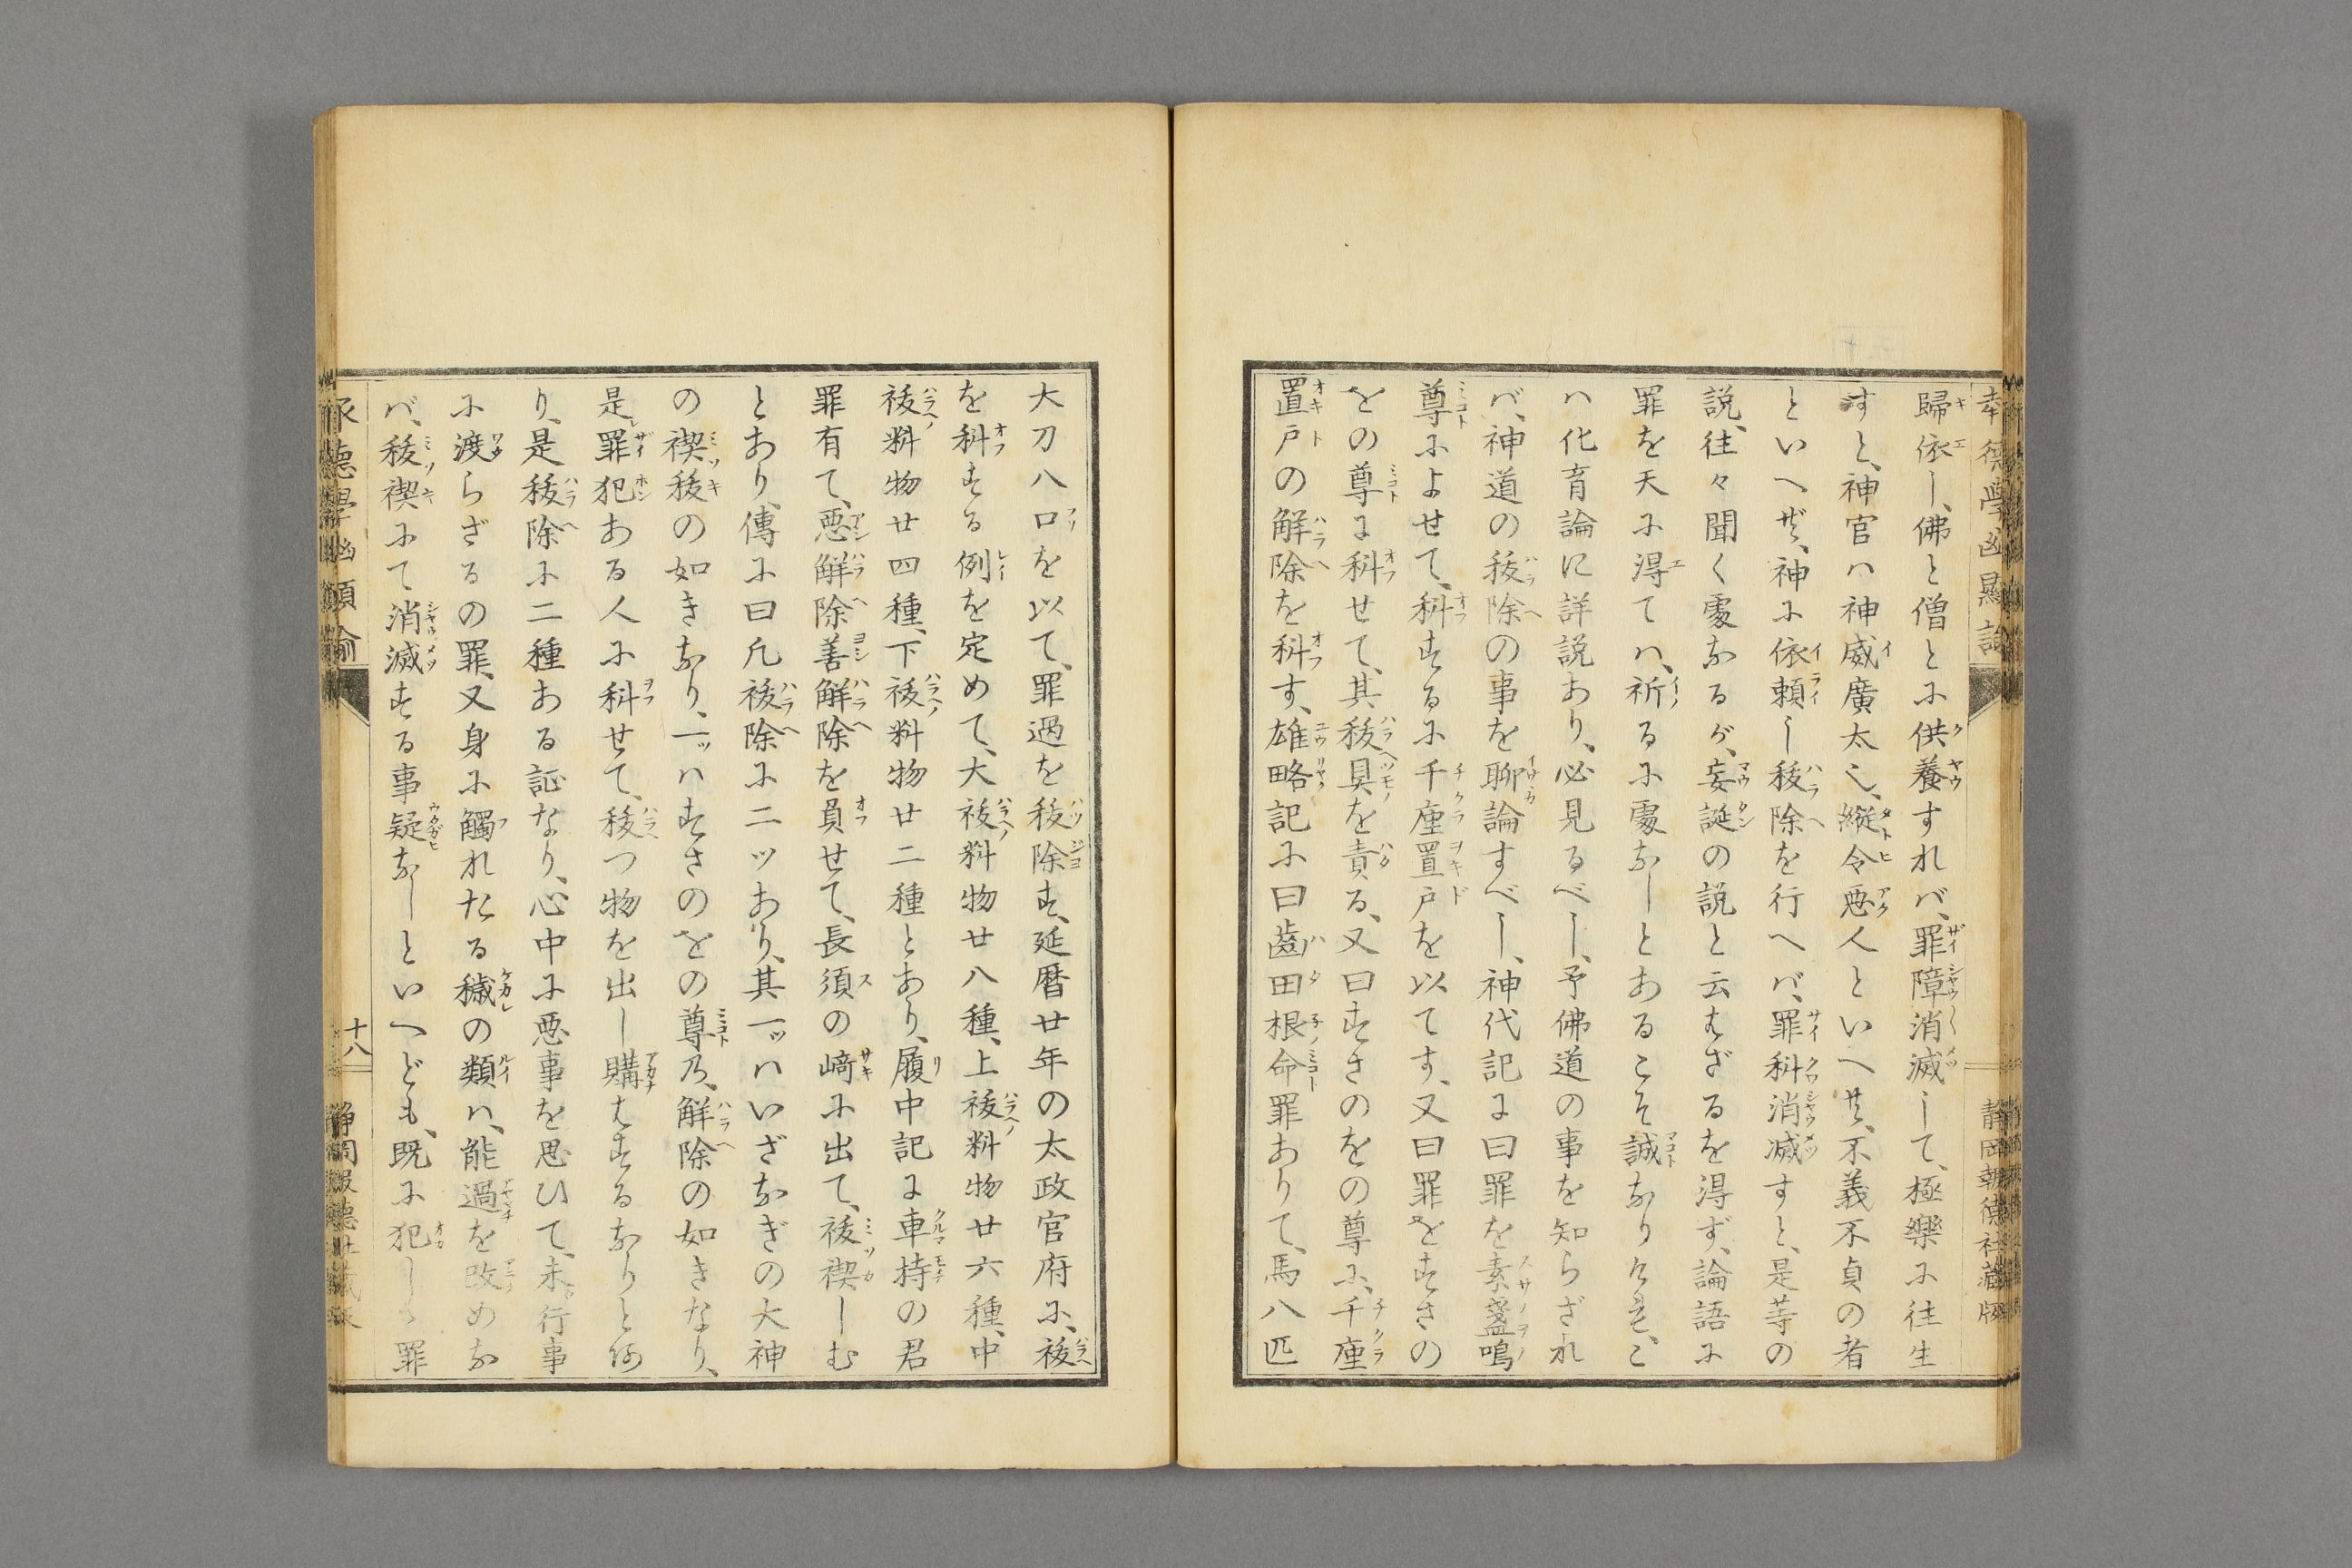 歸依し、佛と僧とに供養すれバ、罪障消滅して、極樂に往生
すと、神官ハ神威廣太也、縱令悪人といへ共、不義不貞の者
といへ共、神に依頼し秡除を行へバ、罪科消滅すと、是等の
説、往々聞く處なるが、妄誕の説と云はざるを得ず、論語に
罪を天に得てハ、祈るに處なしとあるこそ誠なりけれ、こ
ハ化育論に詳説あり、必見るべし、予佛道の事を知らざれ
バ、神道の秡除の事を聊論すべし、神代記に曰罪を素盞嗚
尊によせて、科するに千座置戸を以てす、又曰罪をすさの
をの尊に科せて、其秡具を責る、又曰すさのをの尊に、千座
置戸の解除を科す、雄略記に曰齒田根命罪ありて、馬八匹
大刀八口を以て、罪過を秡除す、延暦廿年の太政官府に、祓
を科する例を定めて、大祓料物廿八種、上祓料物廿六種、中
祓料物廿四種、下祓料物廿二種とあり、履中記に車持の君
罪有て、悪解除善解除を負せて、長須の﨑に出て、祓禊しむ
とあり、傳に曰凡祓除に二ツあり、其一ッハいざなぎの大神
の禊秡の如きなり、一ッハすさのをの尊乃、解除の如きなり、
是レ罪犯ある人に科せて、秡つ物を出し購はするなりと何
り、是秡除に二種ある証なり、心中に悪事を思ひて、未行事
に渡らざるの罪、又身に觸れたる穢の類ハ、能過を改めな
バ、秡禊にて消滅する事疑なしといへども、既に犯しゝ罪
十八